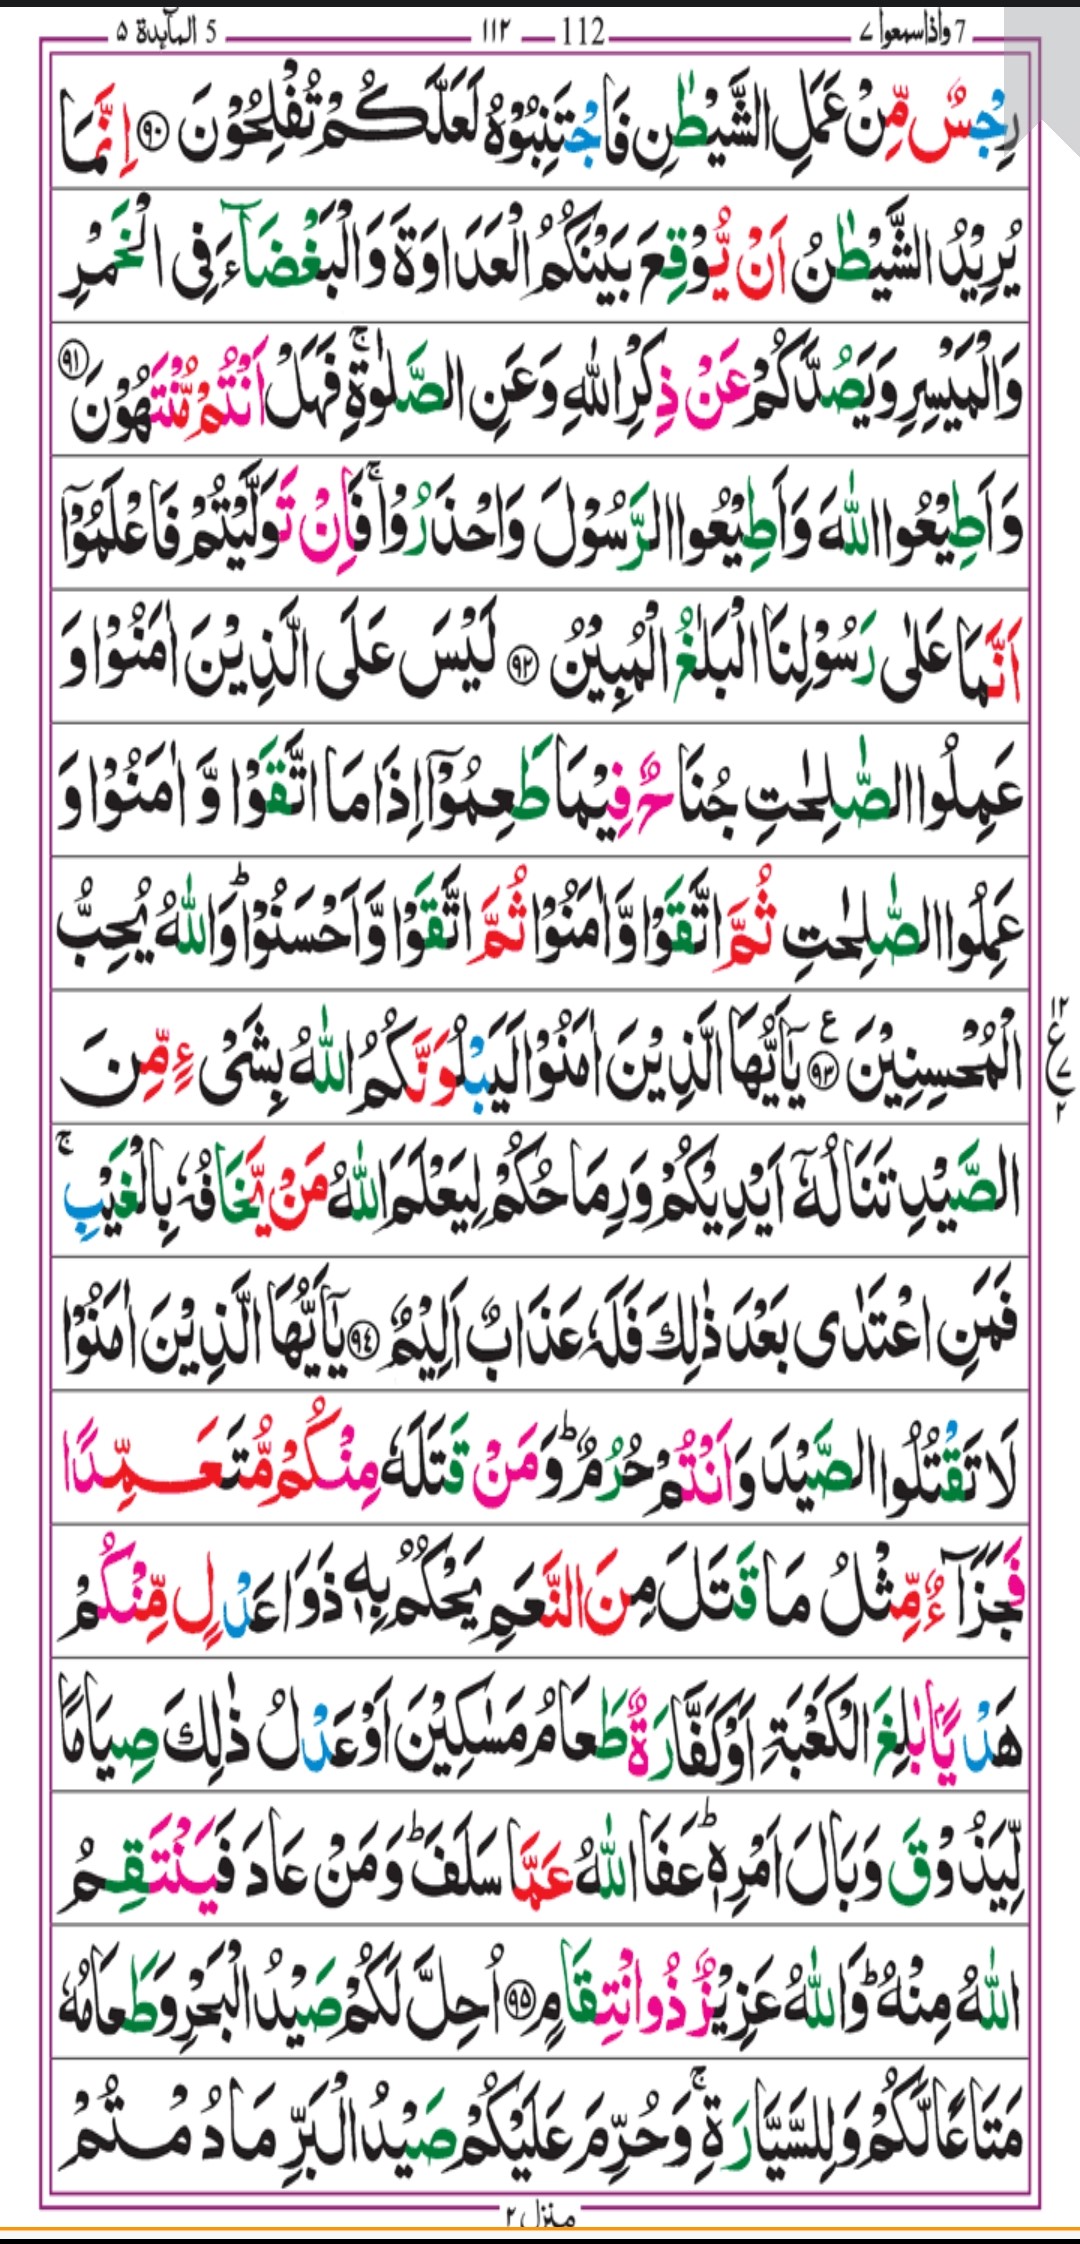 5 المآىِٕدة ۵ 112 ١١٢ 7 واذاسمعوا ٧
رِجْسٌ مِّنْ عَمَلِ الشَّيْطٰنِ فَاجْتَنِبُوْهُ لَعَلَّكُمْ تُفْلِحُوْنَ ﴿۹۰﴾ اِنَّمَا
يُرِيْدُ الشَّيْطٰنُ اَنْ يُّوْقِعَ بَيْنَكُمُ الْعَدَاوَةَ وَالْبَغْضَآءَ فِى الْخَمْرِ
وَالْمَيْسِرِ وَيَصُدَّكُمْ عَنْ ذِكْرِ اللّٰهِ وَعَنِ الصَّلٰوةِ ۚ فَهَلْ اَنْتُمْ مُّنْتَهُوْنَ ﴿۹۱﴾
وَاَطِيْعُوا اللّٰهَ وَاَطِيْعُوا الرَّسُوْلَ وَاحْذَرُوْا ۚ فَاِنْ تَوَلَّيْتُمْ فَاعْلَمُوْۤا
اَنَّمَا عَلٰى رَسُوْلِنَا الْبَلٰغُ الْمُبِيْنُ ﴿۹۲﴾ لَيْسَ عَلَى الَّذِيْنَ اٰمَنُوْا وَ
عَمِلُوا الصّٰلِحٰتِ جُنَاحٌ فِيْمَا طَعِمُوْۤا اِذَا مَا اتَّقَوْا وَّ اٰمَنُوْا وَ
عَمِلُوا الصّٰلِحٰتِ ثُمَّ اتَّقَوْا وَّاٰمَنُوْا ثُمَّ اتَّقَوْا وَّاَحْسَنُوْا ؕ وَاللّٰهُ يُحِبُّ
الْمُحْسِنِيْنَ ﴿۹۳﴾ ع يٰۤاَيُّهَا الَّذِيْنَ اٰمَنُوْا لَيَبْلُوَنَّكُمُ اللّٰهُ بِشَىْءٍ مِّنَ
١٢
ع
٧
٢
الصَّيْدِ تَنَالُهٗۤ اَيْدِيْكُمْ وَرِمَاحُكُمْ لِيَعْلَمَ اللّٰهُ مَنْ يَّخَافُهٗ بِالْغَيْبِ ۚ
فَمَنِ اعْتَدٰى بَعْدَ ذٰلِكَ فَلَهٗ عَذَابٌ اَلِيْمٌ ﴿۹٤﴾ يٰۤاَيُّهَا الَّذِيْنَ اٰمَنُوْا
لَا تَقْتُلُوا الصَّيْدَ وَاَنْتُمْ حُرُمٌ ؕ وَمَنْ قَتَلَهٗ مِنْكُمْ مُّتَعَمِّدًا
فَجَزَآءٌ مِّثْلُ مَا قَتَلَ مِنَ النَّعَمِ يَحْكُمُ بِهٖ ذَوَا عَدْلٍ مِّنْكُمْ
هَدْيًاۢ بٰلِغَ الْكَعْبَةِ اَوْ كَفَّارَةٌ طَعَامُ مَسٰكِيْنَ اَوْ عَدْلُ ذٰلِكَ صِيَامًا
لِّيَذُوْقَ وَبَالَ اَمْرِهٖ ؕ عَفَا اللّٰهُ عَمَّا سَلَفَ ؕ وَمَنْ عَادَ فَيَنْتَقِمُ
اللّٰهُ مِنْهُ ؕ وَاللّٰهُ عَزِيْزٌ ذُو انْتِقَامٍ ﴿۹۵﴾ اُحِلَّ لَكُمْ صَيْدُ الْبَحْرِ وَطَعَامُهٗ
مَتَاعًا لَّكُمْ وَلِلسَّيَّارَةِ ۚ وَحُرِّمَ عَلَيْكُمْ صَيْدُ الْبَرِّ مَا دُمْتُمْ
منزل ٢